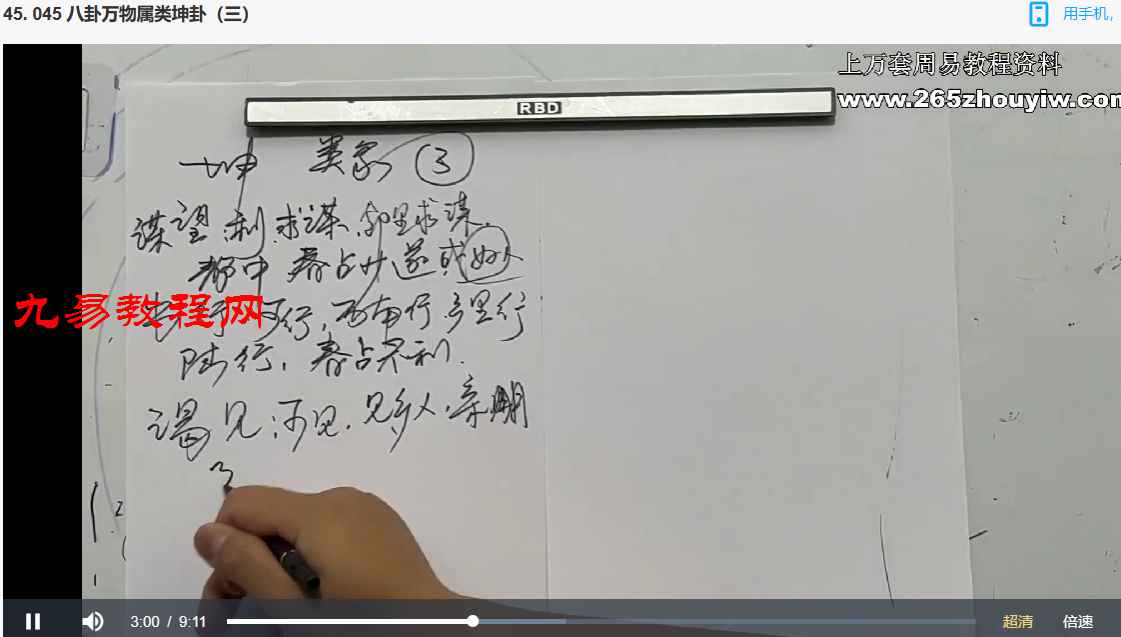 45. 045 八卦万物属类坤卦（三）
用手机,
上万套周易教程资料
www.265zhouyiw.com
RBD
坤 类象 ③
谋望:利求谋、邻里求谋.
静中 春占少遂或妇人
九易教程网
可行,西南行 乡里行
陆行, 春占不利.
谒见:可见. 见乡人、亲朋
3:00 / 9:11
超清
倍速